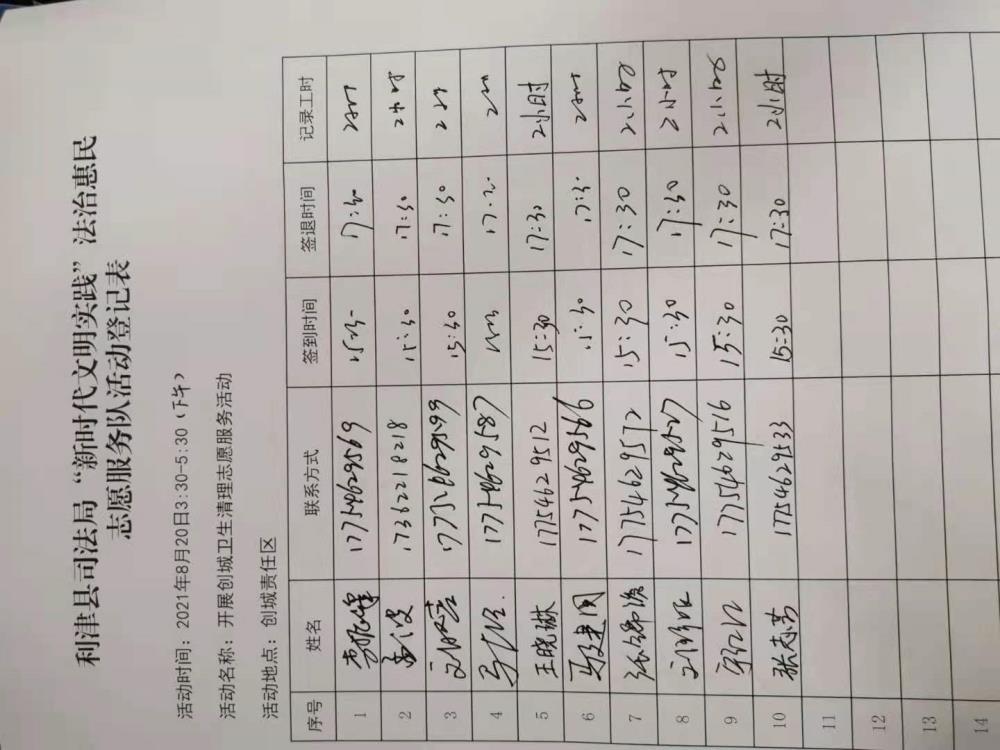 利津县司法局“新时代文明实践”法治惠民
志愿服务队活动登记表
活动时间：2021年8月20日3:30-5:30（下午）
活动名称：开展创城卫生清理志愿服务活动
活动地点：创城责任区
序号 姓名 联系方式 签到时间 签退时间 记录工时
1 17754629569 17:30
2 17362218218 15:30 17:30 2小时
3 17754629599 15:30 17:30
4 17754629587
5 王晓琳 17754629512 15:30 17:30 2小时
6 马建国 17754629566 15:30 17:30
7 17754629572 15:30 17:30 2小时
8 17754629527 15:30 17:30 2小时
9 17754629516 15:30 17:30 2小时
10 张志芳 17754629533 15:30 17:30 2小时
11
12
13
14